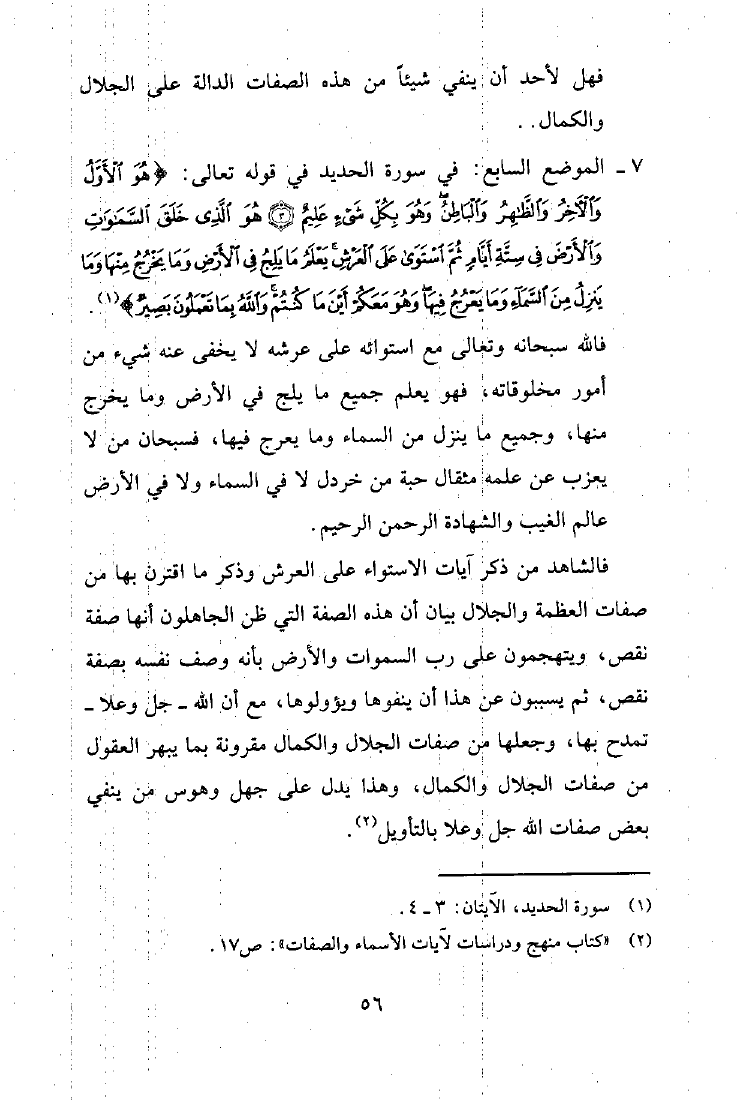 فهل لأحد أن ينفي شيئاً من هذه الصفات الدالة على الجلال
والكمال..
٧ ـ الموضع السابع: في سورة الحديد في قوله تعالى: ﴿هُوَ ٱلْأَوَّلُ
وَٱلْأَخِرُ وَٱلظَّٰهِرُ وَٱلْبَاطِنُ ۖ وَهُوَ بِكُلِّ شَىْءٍ عَلِيمٌ ۝٣ هُوَ الَّذِى خَلَقَ السَّمَٰوَٰتِ
وَٱلْأَرْضَ فِى سِتَّةِ أَيَّامٍ ثُمَّ ٱسْتَوَىٰ عَلَى ٱلْعَرْشِ ۚ يَعْلَمُ مَا يَلِجُ فِى ٱلْأَرْضِ وَمَا يَخْرُجُ مِنْهَا وَمَا
يَنزِلُ مِنَ السَّمَآءِ وَمَا يَعْرُجُ فِيهَا ۖ وَهُوَ مَعَكُمْ أَيْنَ مَا كُنتُمْ ۚ وَٱللَّهُ بِمَا تَعْمَلُونَ بَصِيرٌ﴾(١).
فالله سبحانه وتعالى مع استوائه على عرشه لا يخفى عنه شيء من
أمور مخلوقاته، فهو يعلم جميع ما يلج في الأرض وما يخرج
منها، وجميع ما ينزل من السماء وما يعرج فيها، فسبحان من لا
يعزب عن علمه مثقال حبة من خردل لا في السماء ولا في الأرض
عالم الغيب والشهادة الرحمن الرحيم.
فالشاهد من ذكر آيات الاستواء على العرش وذكر ما اقترن بها من
صفات العظمة والجلال بيان أن هذه الصفة التي ظن الجاهلون أنها صفة
نقص، ويتهجمون على رب السموات والأرض بأنه وصف نفسه بصفة
نقص، ثم يسببون عن هذا أن ينفوها ويؤولوها، مع أن الله ـ جل وعلا ـ
تمدح بها، وجعلها من صفات الجلال والكمال مقرونة بما يبهر العقول
من صفات الجلال والكمال، وهذا يدل على جهل وهوس من ينفي
بعض صفات الله جل وعلا بالتأويل(٢).
(١) سورة الحديد، الآيتان: ٣ ـ ٤.
(٢) «كتاب منهج ودراسات لآيات الأسماء والصفات»: ص١٧.
٥٦